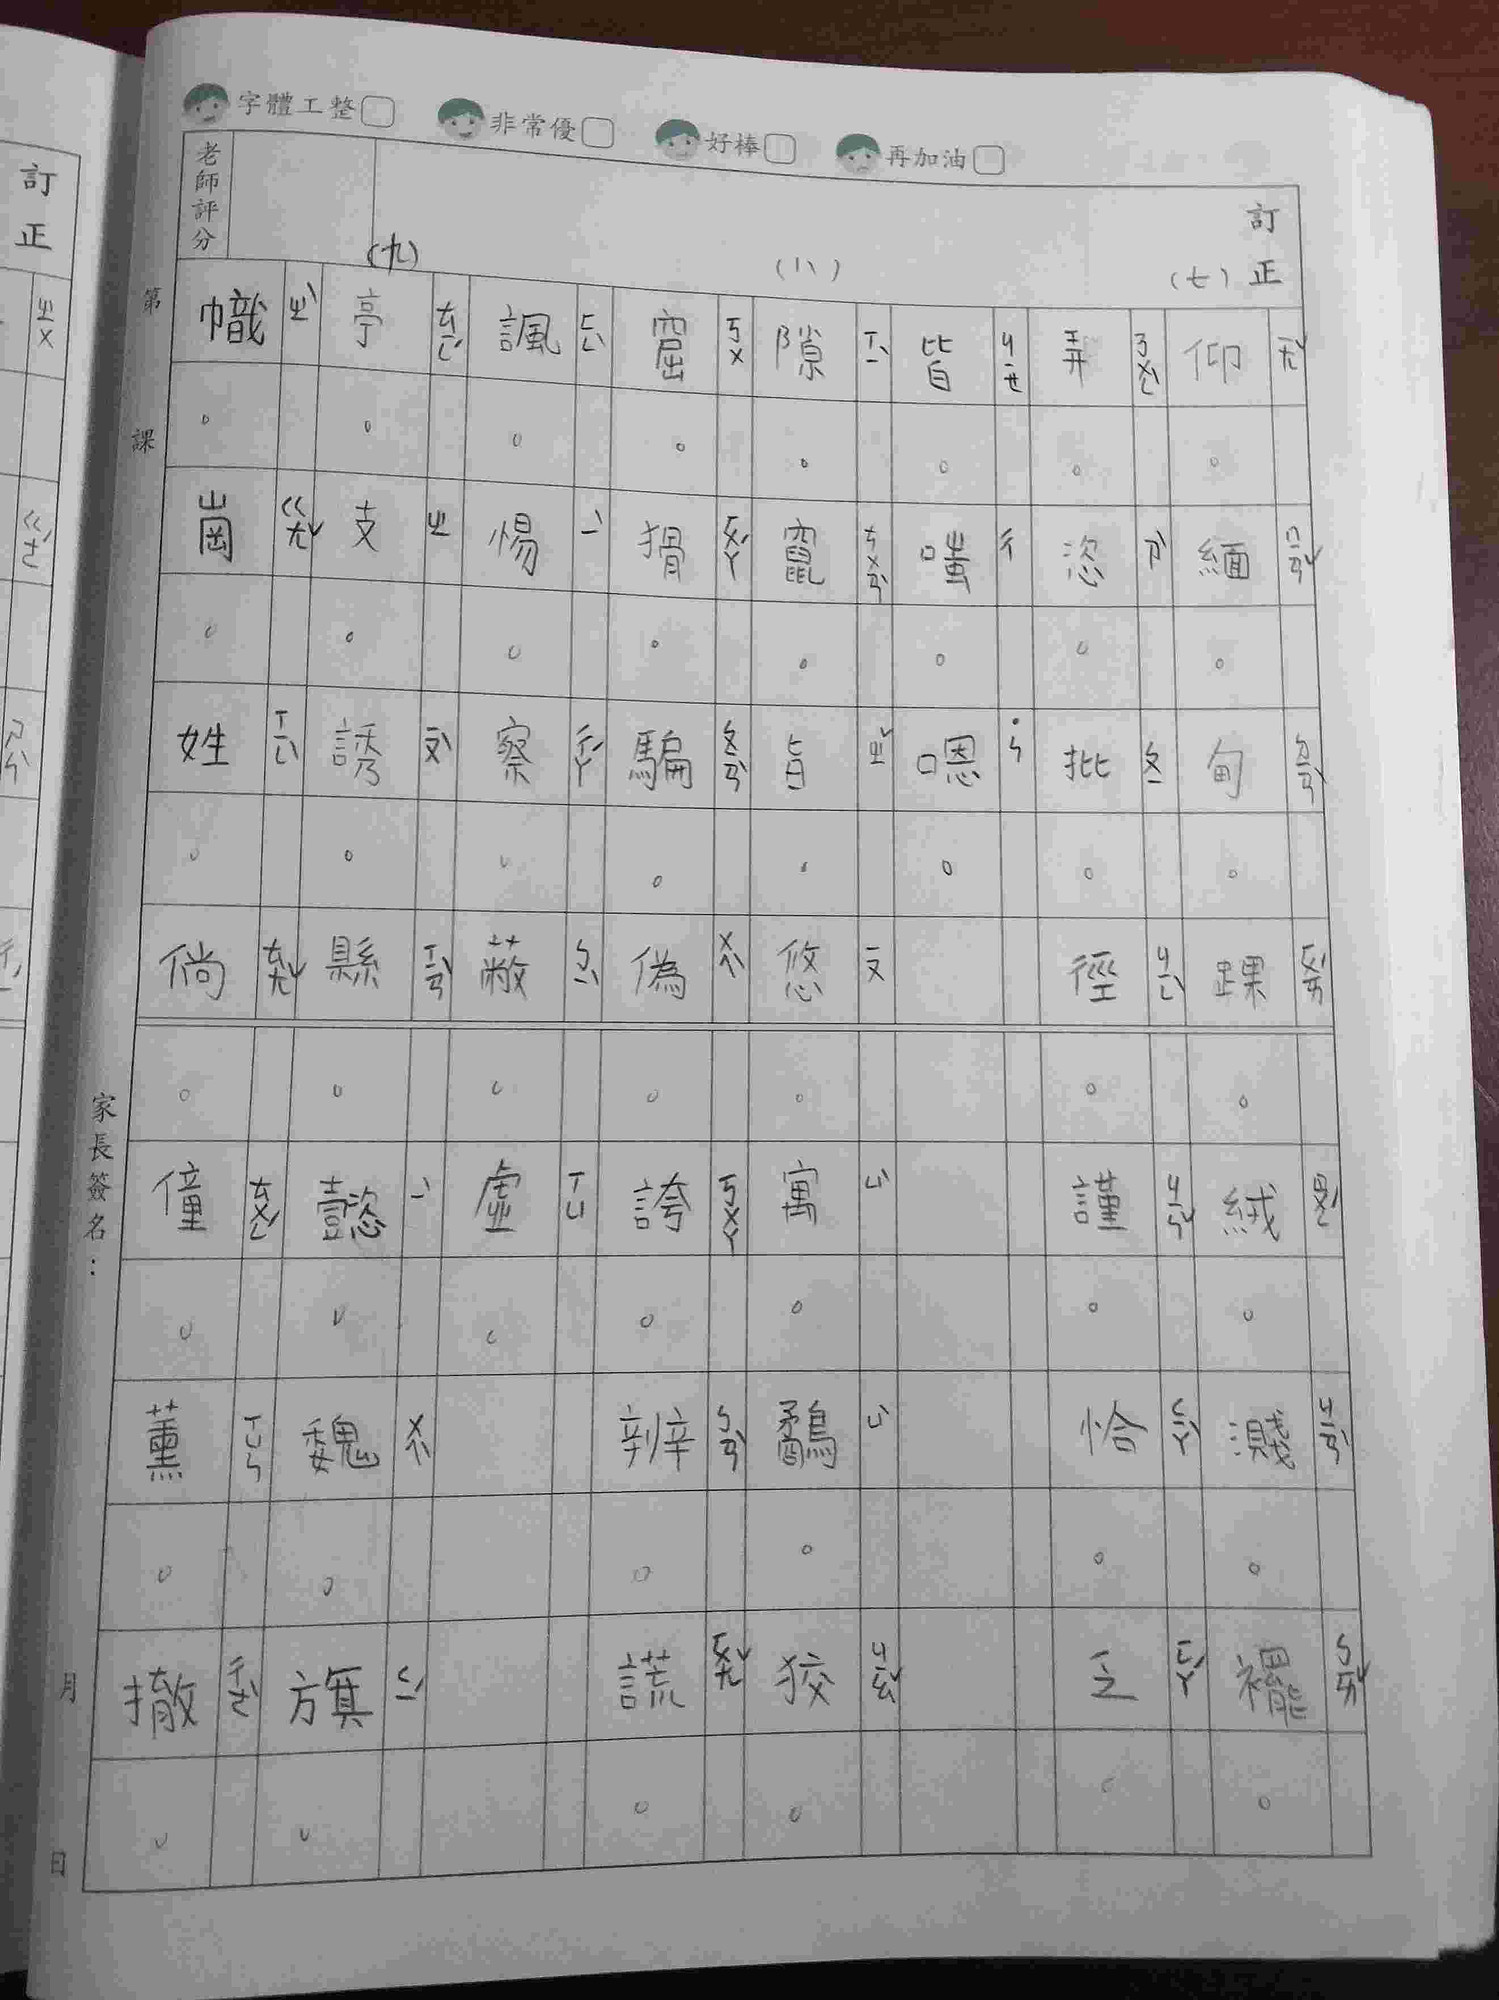 字體工整 非常優 好棒 再加油
老師評分
訂正
(七)
(八)
(九)
仰 ㄤˇ 。 緬 ㄇㄧㄢˇ 。 甸 ㄉㄧㄢˋ 。 踝 ㄏㄨㄞˊ 。 絨 ㄖㄨㄥˊ 。 濺 ㄐㄧㄢˋ 。 襬 ㄅㄞˇ 。
弄 ㄋㄨㄥˋ 。 恣 ㄗˋ 。 批 ㄆㄧ 。 徑 ㄐㄧㄥˋ 。 謹 ㄐㄧㄣˇ 。 恰 ㄑㄧㄚˋ 。 乏 ㄈㄚˊ 。
皆 ㄐㄧㄝ 。 嗤 ㄔ 。 嗯 ˙ㄣ 。
隙 ㄒㄧˋ 。 竄 ㄘㄨㄢˋ 。 旨 ㄓˇ 。 悠 ㄧㄡ 。 寓 ㄩˋ 。 鷸 ㄩˋ 。 狡 ㄐㄧㄠˇ 。
窟 ㄎㄨ 。 猾 ㄏㄨㄚˊ 。 騙 ㄆㄧㄢˋ 。 偽 ㄨㄟˋ 。 誇 ㄎㄨㄚ 。 辨 ㄅㄧㄢˋ 。 謊 ㄏㄨㄤˇ 。
諷 ㄈㄥˋ 。 惕 ㄧˋ 。 察 ㄔㄚˊ 。 蔽 ㄅㄧˋ 。 虛 ㄒㄩ 。
亭 ㄊㄧㄥˊ 。 支 ㄓ 。 誘 ㄧㄡˋ 。 縣 ㄒㄧㄢˋ 。 懿 ㄧˋ 。 魏 ㄨㄟˋ 。 旗 ㄑㄧˊ 。
幟 ㄓˋ 。 崗 ㄍㄤˇ 。 姓 ㄒㄧㄥˋ 。 倘 ㄊㄤˇ 。 僮 ㄊㄨㄥˊ 。 薰 ㄒㄩㄣ 。 撤 ㄔㄜˋ 。
第 課
家長簽名:
月 日
訂正
ㄓㄨ